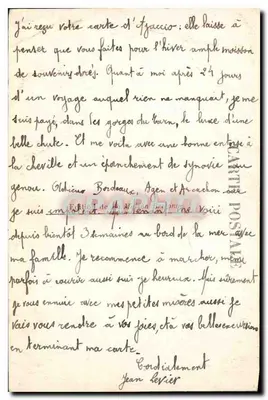 J'ai reçu votre carte d'Ajaccio : elle laisse à
penser que vous faites pour l'hiver ample moisson
de souvenirs dorés. Quant à moi après 24 jours
d'un voyage auquel rien ne manquait, je me
suis payé, dans les gorges du Tarn, le luxe d'une
belle chute. Et me voilà avec une bonne entorse à
la cheville et un épanchement de synovie au
genou. Adieu Bordeaux, Agen et Arcachon car
je suis
depuis bientôt 3 semaines au bord de la mer avec
ma famille. Je recommence à marcher, même
parfois à courir aussi suis-je heureux. Mais sûrement
je vous ennuie avec mes petites misères aussi je
vais vous rendre à vos joies, et à vos belles excursions
en terminant ma carte.
Cordialement
Jean
CARTE POSTALE